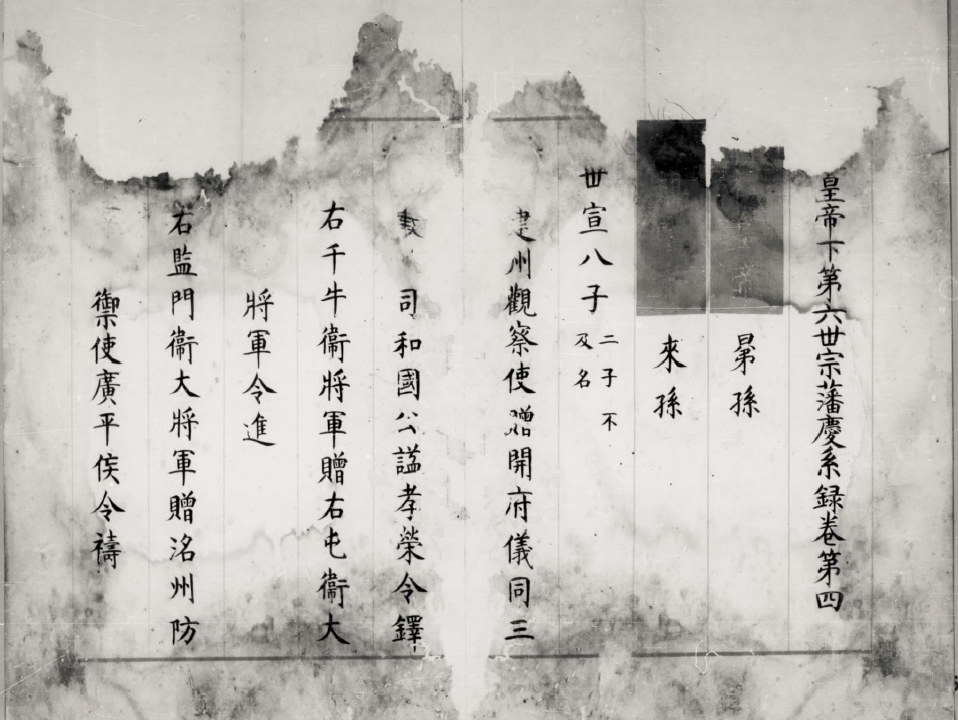 皇帝下第六世宗藩慶系録卷第四
晜孫
來孫
世宣八子二子不及名
建州觀察使贈開府儀同三
司和國公謚孝榮令鐸
右千牛衞將軍贈右屯衞大
將軍令進
右監門衞大將軍贈洺州防
禦使廣平侯令禱